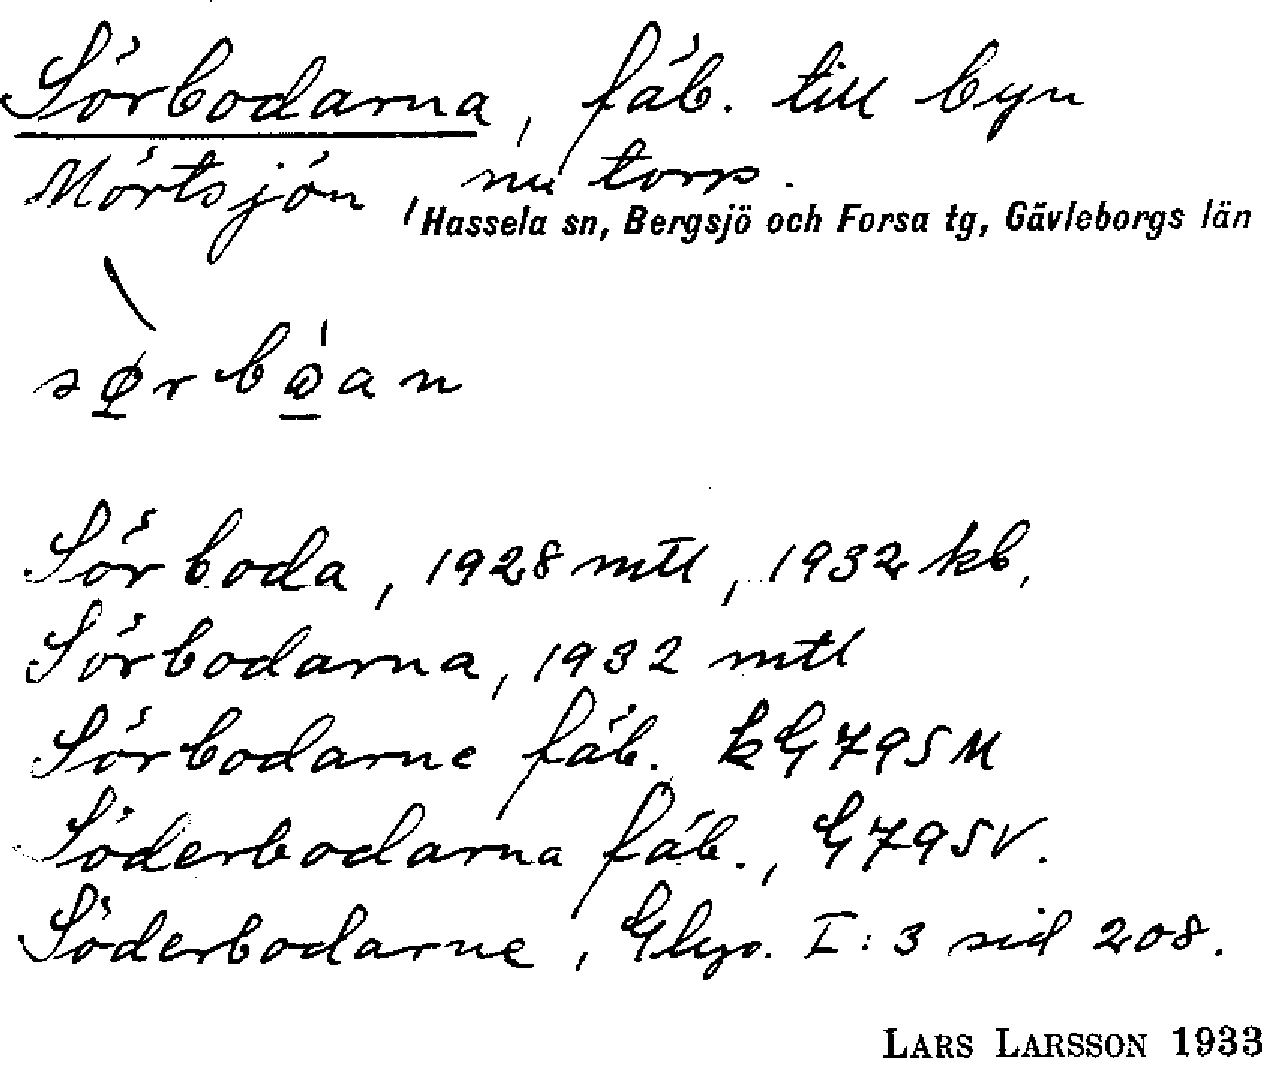 Sörbodarna, fäb. till byn
Mörtsjön, nu torp.
Hassela sn, Bergsjö och Forsa tg, Gävleborgs län
sørbǫ́an
Sörboda, 1928 mtl, 1932 kb,
Sörbodarna, 1932 mtl
Sörbodarne fäb. kG795M
Söderbodarna fäb., G795V.
Söderbodarne, Glyo. I:3 sid 208.
LARS LARSSON 1933